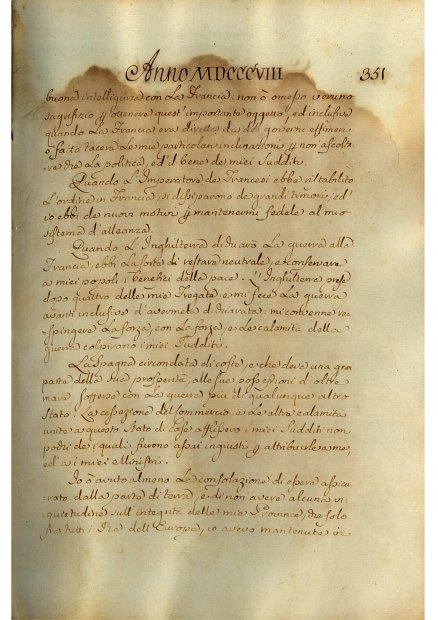 Anno MDCCCVIII 351
buona intelligenza con la Francia: non ò omesso veruno
sagrifizio p ottenere quest' importante oggetto, ed inclusive
quando la Francia era diretta da dei governi effimeri
ò fatto tacere le mie particolari inclinazioni p non ascolta-
re che la politica, ed il bene de miei Sudditi.
Quando l'Imperatore de Francesi ebbe ristabilito
l'ordine in Francia, si dissiparono de grandi timori, ed
io ebbi de nuovi motivi p mantenermi fedele al mio
sistema d'alleanza.
Quando l'Inghilterra dichiarò la guerra alla
Francia, ebbi la sorte di restare neutrale, e conservare
a miei popoli i benefici della pace. L'Inghilterra prese
dopo quattro delle mie Fregate, e mi fece la guerra
avanti inclusive d'avermela dichiarata: mi convenne re-
spingere la forza, con la forza, e le calamità della
guerra colpirono i miei Sudditi.
La Spagna circondata di coste, e che deve una gra
parte della sua prosperità, alle sue possessioni d'oltre
mare, sofferse con la guerra più di qualunque altro
Stato: La cessazione del Commercio, e le altre calamità
unite a questo Stato di cose afflissero i miei Sudditi non
pochi de quali furono assai ingiusti p attribuirle a me,
ed a i miei Ministri.
Io ò avuto almeno la consolazione di essere assicu-
rato dalla parte di terra, e di non avere alcuna in-
quietudine sull' integrità delle mie Provincie, che solo
fra tutti i Re dell' Europa, io avevo mantenute in